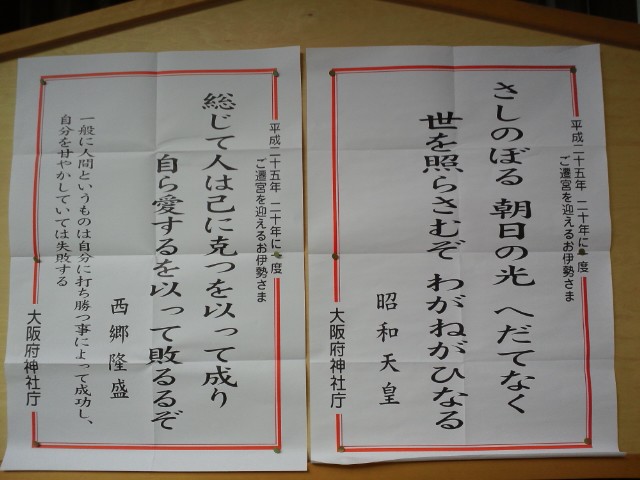 平成二十五年 二十年に一度
ご遷宮を迎えるお伊勢さま
さしのぼる 朝日の光 へだてなく
世を照らさむぞ わがねがひなる
昭和天皇
大阪府神社庁
平成二十五年 二十年に一度
ご遷宮を迎えるお伊勢さま
総じて人は己に克つを以って成り
自ら愛するを以って敗るるぞ
西郷隆盛
一般に人間というものは自分に打ち勝つ事によって成功し、
自分を甘やかしていては失敗する
大阪府神社庁